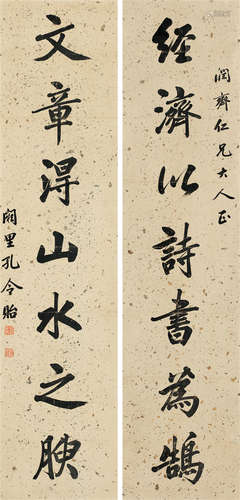 润齋仁兄大人正
經濟以詩書為鵠
文章得山水之腴
闕里孔令貽